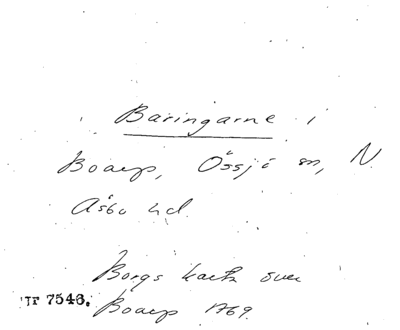 Baringarne i
Boarp, Össjö sn, N.
Åsbo hd.
Borgs karta över
TF 7546. Boarp 1769.